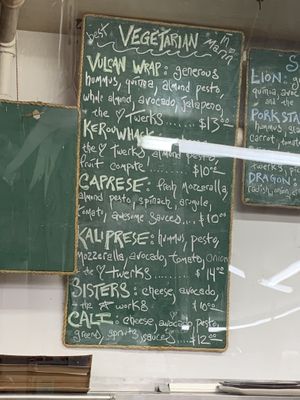 best VEGETARIAN in Marin
VULCAN WRAP: generous
hummus, quinoa, almond pesto,
whole almond, avocado, jalapeno,
& the ♡ twerks....... $13.00
KEROWHACK
the ♡ twerks, almond pesto,
fruit compote....... $10.00
CAPRESE: fresh mozzerella,
almond pesto, spinach, arugule,
tomato, awesome sauces.... $10.00
KALIPRESE: hummus, pesto,
mozzerella, avocado, tomato, onion
& the ♡ twerks....... $14.00
SISTERS: cheese, avocado,
& the works $10.00
CALI: cheese, avocado, pesto
greens, sprouts, sauces.... $12.00
LION:
quinoa, avo
and the
PORK STA
hummus, g
carrot, tomat
twerks, p
DRAGON
radish, onion, c